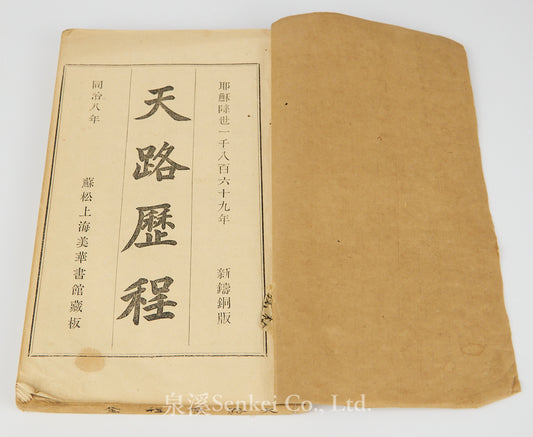 耶穌降世一千八百六十九年 新鑄銅版
天路歷程
同治八年 蘇松上海美華書館藏板
泉溪Senkei Co., Ltd.